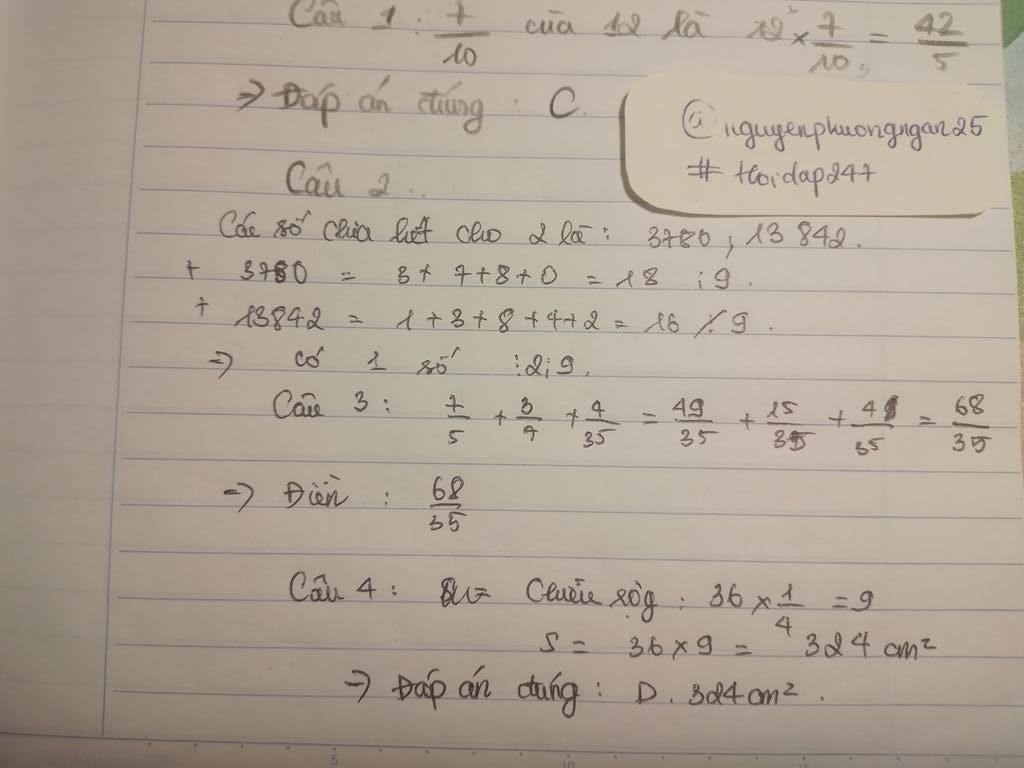 Câu 1 : 7/10 của 12 là 12 × 7/10 5 = 42/5
=> Đáp án đúng : C.
@nguyenphuongngan25
# Hoidap247
Câu 2 ..
Các số chia hết cho 2 là : 3780 , 13 842.
+ 3780 = 3 + 7 + 8 + 0 = 18 ⋮ 9 .
+ 13842 = 1 + 3 + 8 + 4 + 2 = 16 ⋮̸ 9 .
=> có 1 số ⋮ 2; 9.
Câu 3 : 7/5 + 3/7 + 4/35 = 49/35 + 15/35 + 4/35 = 68/35
=> Điền : 68/35
Câu 4 : Chiều rộg : 36 × 1/4 = 9
S = 36 × 9 = 324 cm²
=> Đáp án đúng : D. 324 cm² .